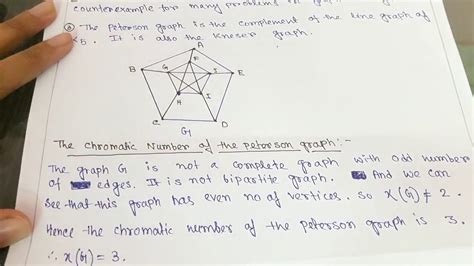 counterexample for many problems in graph
④ The Peterson graph is the complement of the line graph of
K5. It is also the Kneser graph.
A
B
F
G
J
E
H
I
C
D
G
The Chromatic Number of the peterson graph:-
The graph G is not a complete graph with odd number
of edges. It is not bipartite graph. And we can
see that this graph has even no of vertices. so χ(G) ≠ 2.
Hence the chromatic number of the peterson graph is 3.
∴ χ(G) = 3.